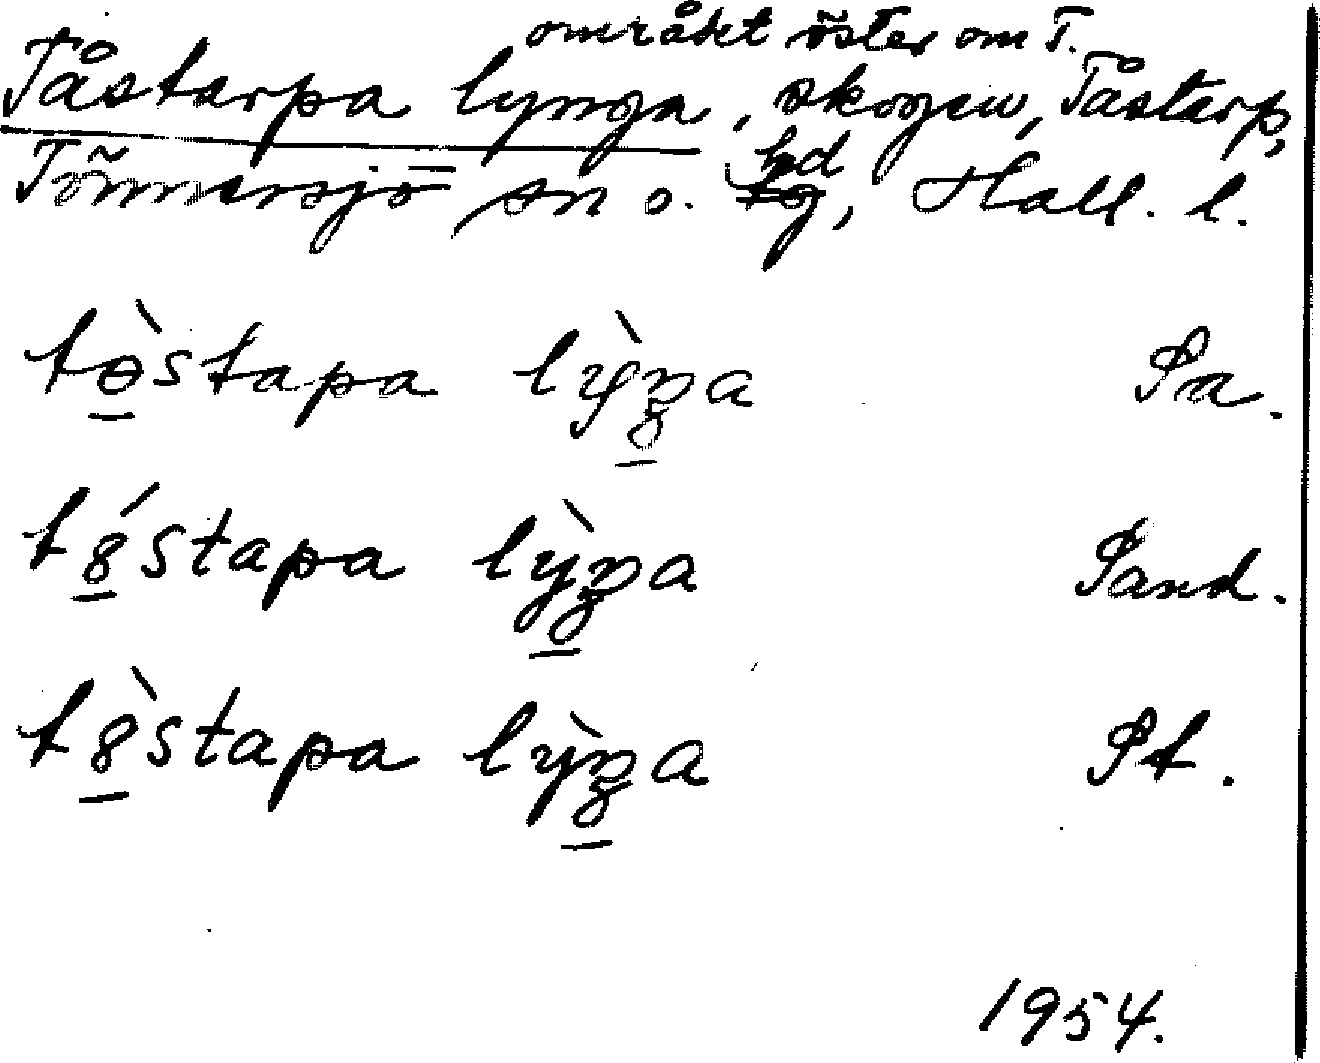 området öster om T.
Tåstarpa lynga, skogen, Tåstarp,
Tönnersjö sn o. hd, Hall. l.
tɵ̀stapa lỳŋa Pa.
t8́stapa lỳŋa Pand.
t8̀stapa lỳŋa Pt.
1954.